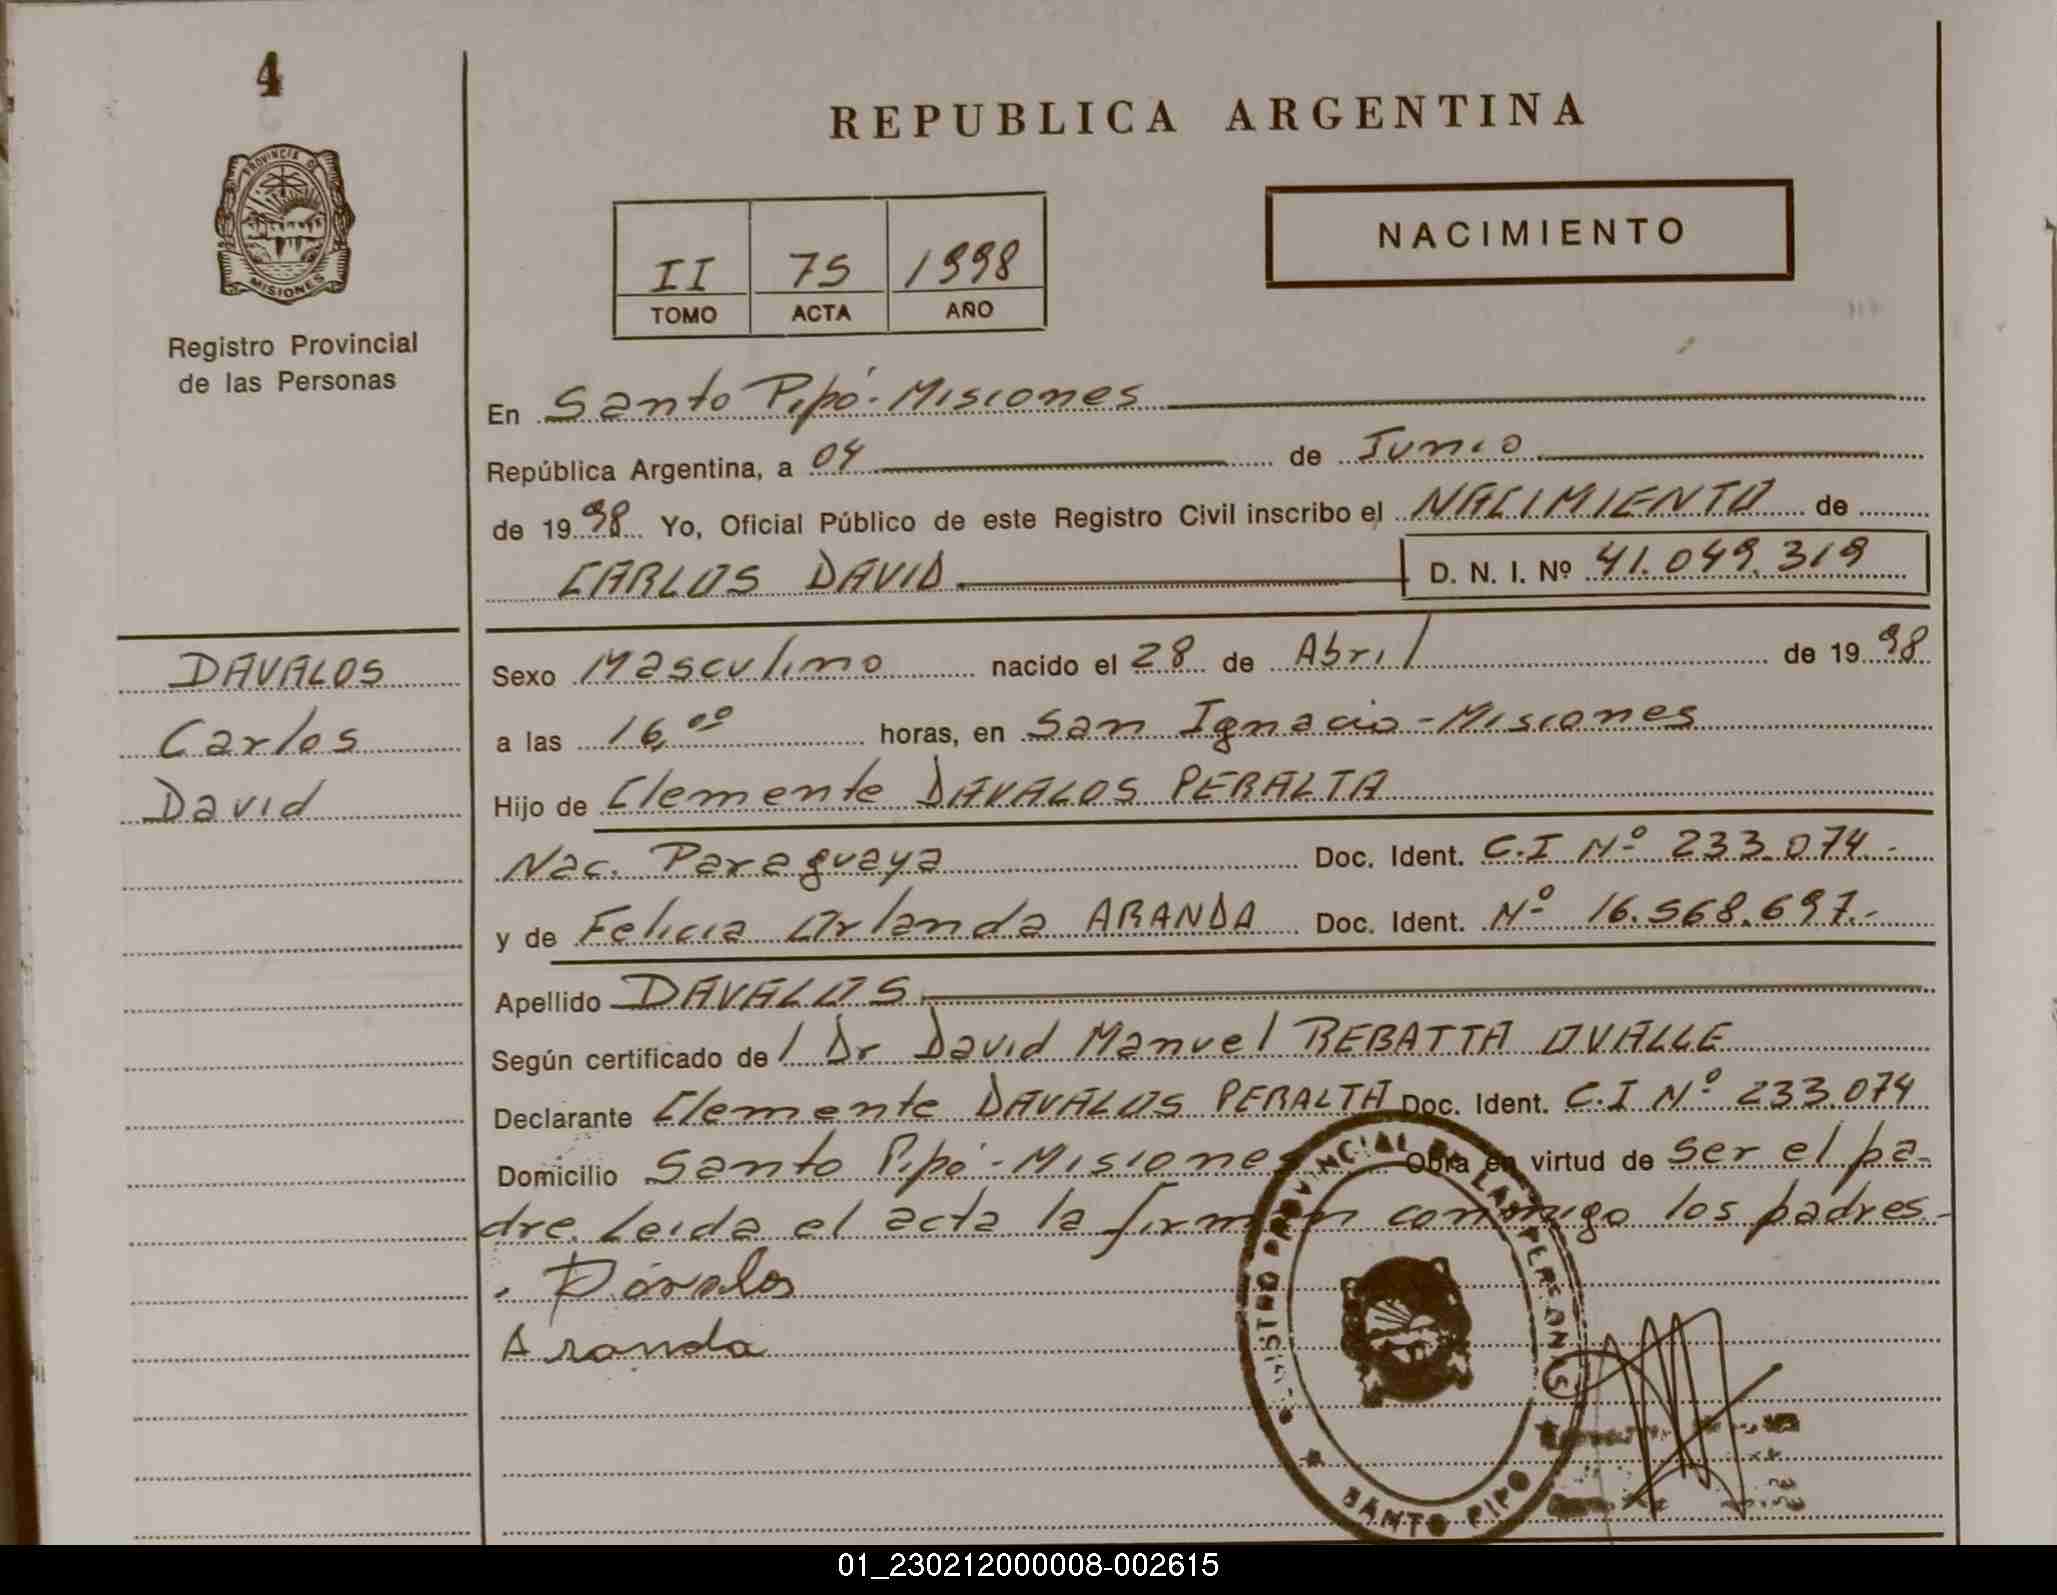 4
REPUBLICA ARGENTINA
PROVINCIA D
MISIONES
Registro Provincial
de las Personas
II 75 1998
TOMO ACTA AÑO
NACIMIENTO
En Santo Pipó - Misiones
República Argentina, a 04 de Junio
de 1998 Yo, Oficial Público de este Registro Civil inscribo el NACIMIENTO de
CARLOS DAVID D. N. I. Nº 41.049.319
DAVALOS
Carlos
David
Sexo Masculino nacido el 28 de Abril de 1998
a las 16,00 horas, en San Ignacio - Misiones
Hijo de Clemente DAVALOS PERALTA
Nac. Paraguaya Doc. Ident. C.I Nº 233.074.-
y de Felicia Orlanda ARANDA Doc. Ident. Nº 16.568.697.-
Apellido DAVALOS
Según certificado del Dr David Manuel REBATTA OVALLE
Declarante Clemente DAVALOS PERALTA Doc. Ident. C.I Nº 233.074
Domicilio Santo Pipó - Misiones Obra en virtud de ser el pa-
dre. Leida el acta la firman conmigo los padres.-
Dávalos
Aranda
REGISTRO PROVINCIAL DE LAS PERSONAS
SANTO PIPO
01_230212000008-002615